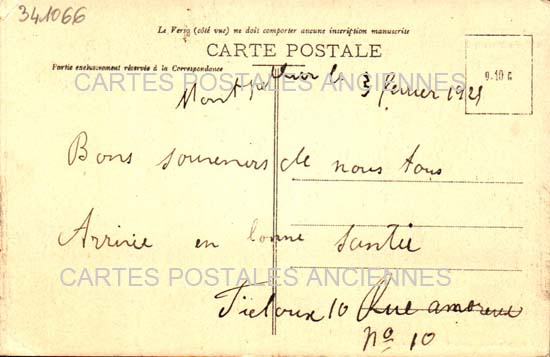 341066
Le Verso (côté vue) ne doit comporter aucune inscription manuscrite
CARTE POSTALE
Partie exclusivement réservée à la Correspondance
CARTES POSTALES ANCIENNES
le 3 février 1921
9.10 C
Bons souvenirs de nous tous
Arrivée en bonne santée
CARTES POSTALES ANCIENNES
10 Rue
No 10